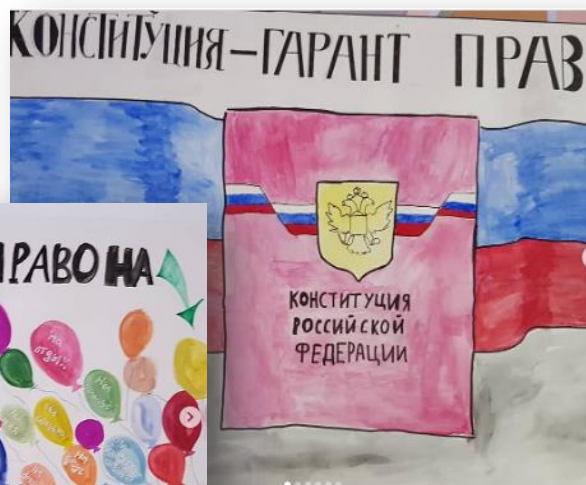 КОНСТИТУЦИЯ – ГАРАНТ ПРАВ
КОНСТИТУЦИЯ
РОССИЙСКОЙ
ФЕДЕРАЦИИ
ПРАВО НА
На
отдых